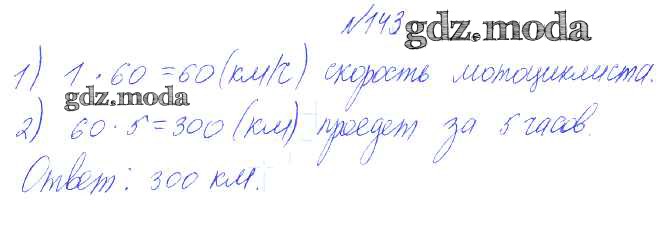 №143 gdz.moda
1) 1 · 60 = 60 (км/ч) скорость мотоциклиста.
gdz.moda
2) 60 · 5 = 300 (км) проедет за 5 часов.
Ответ: 300 км.